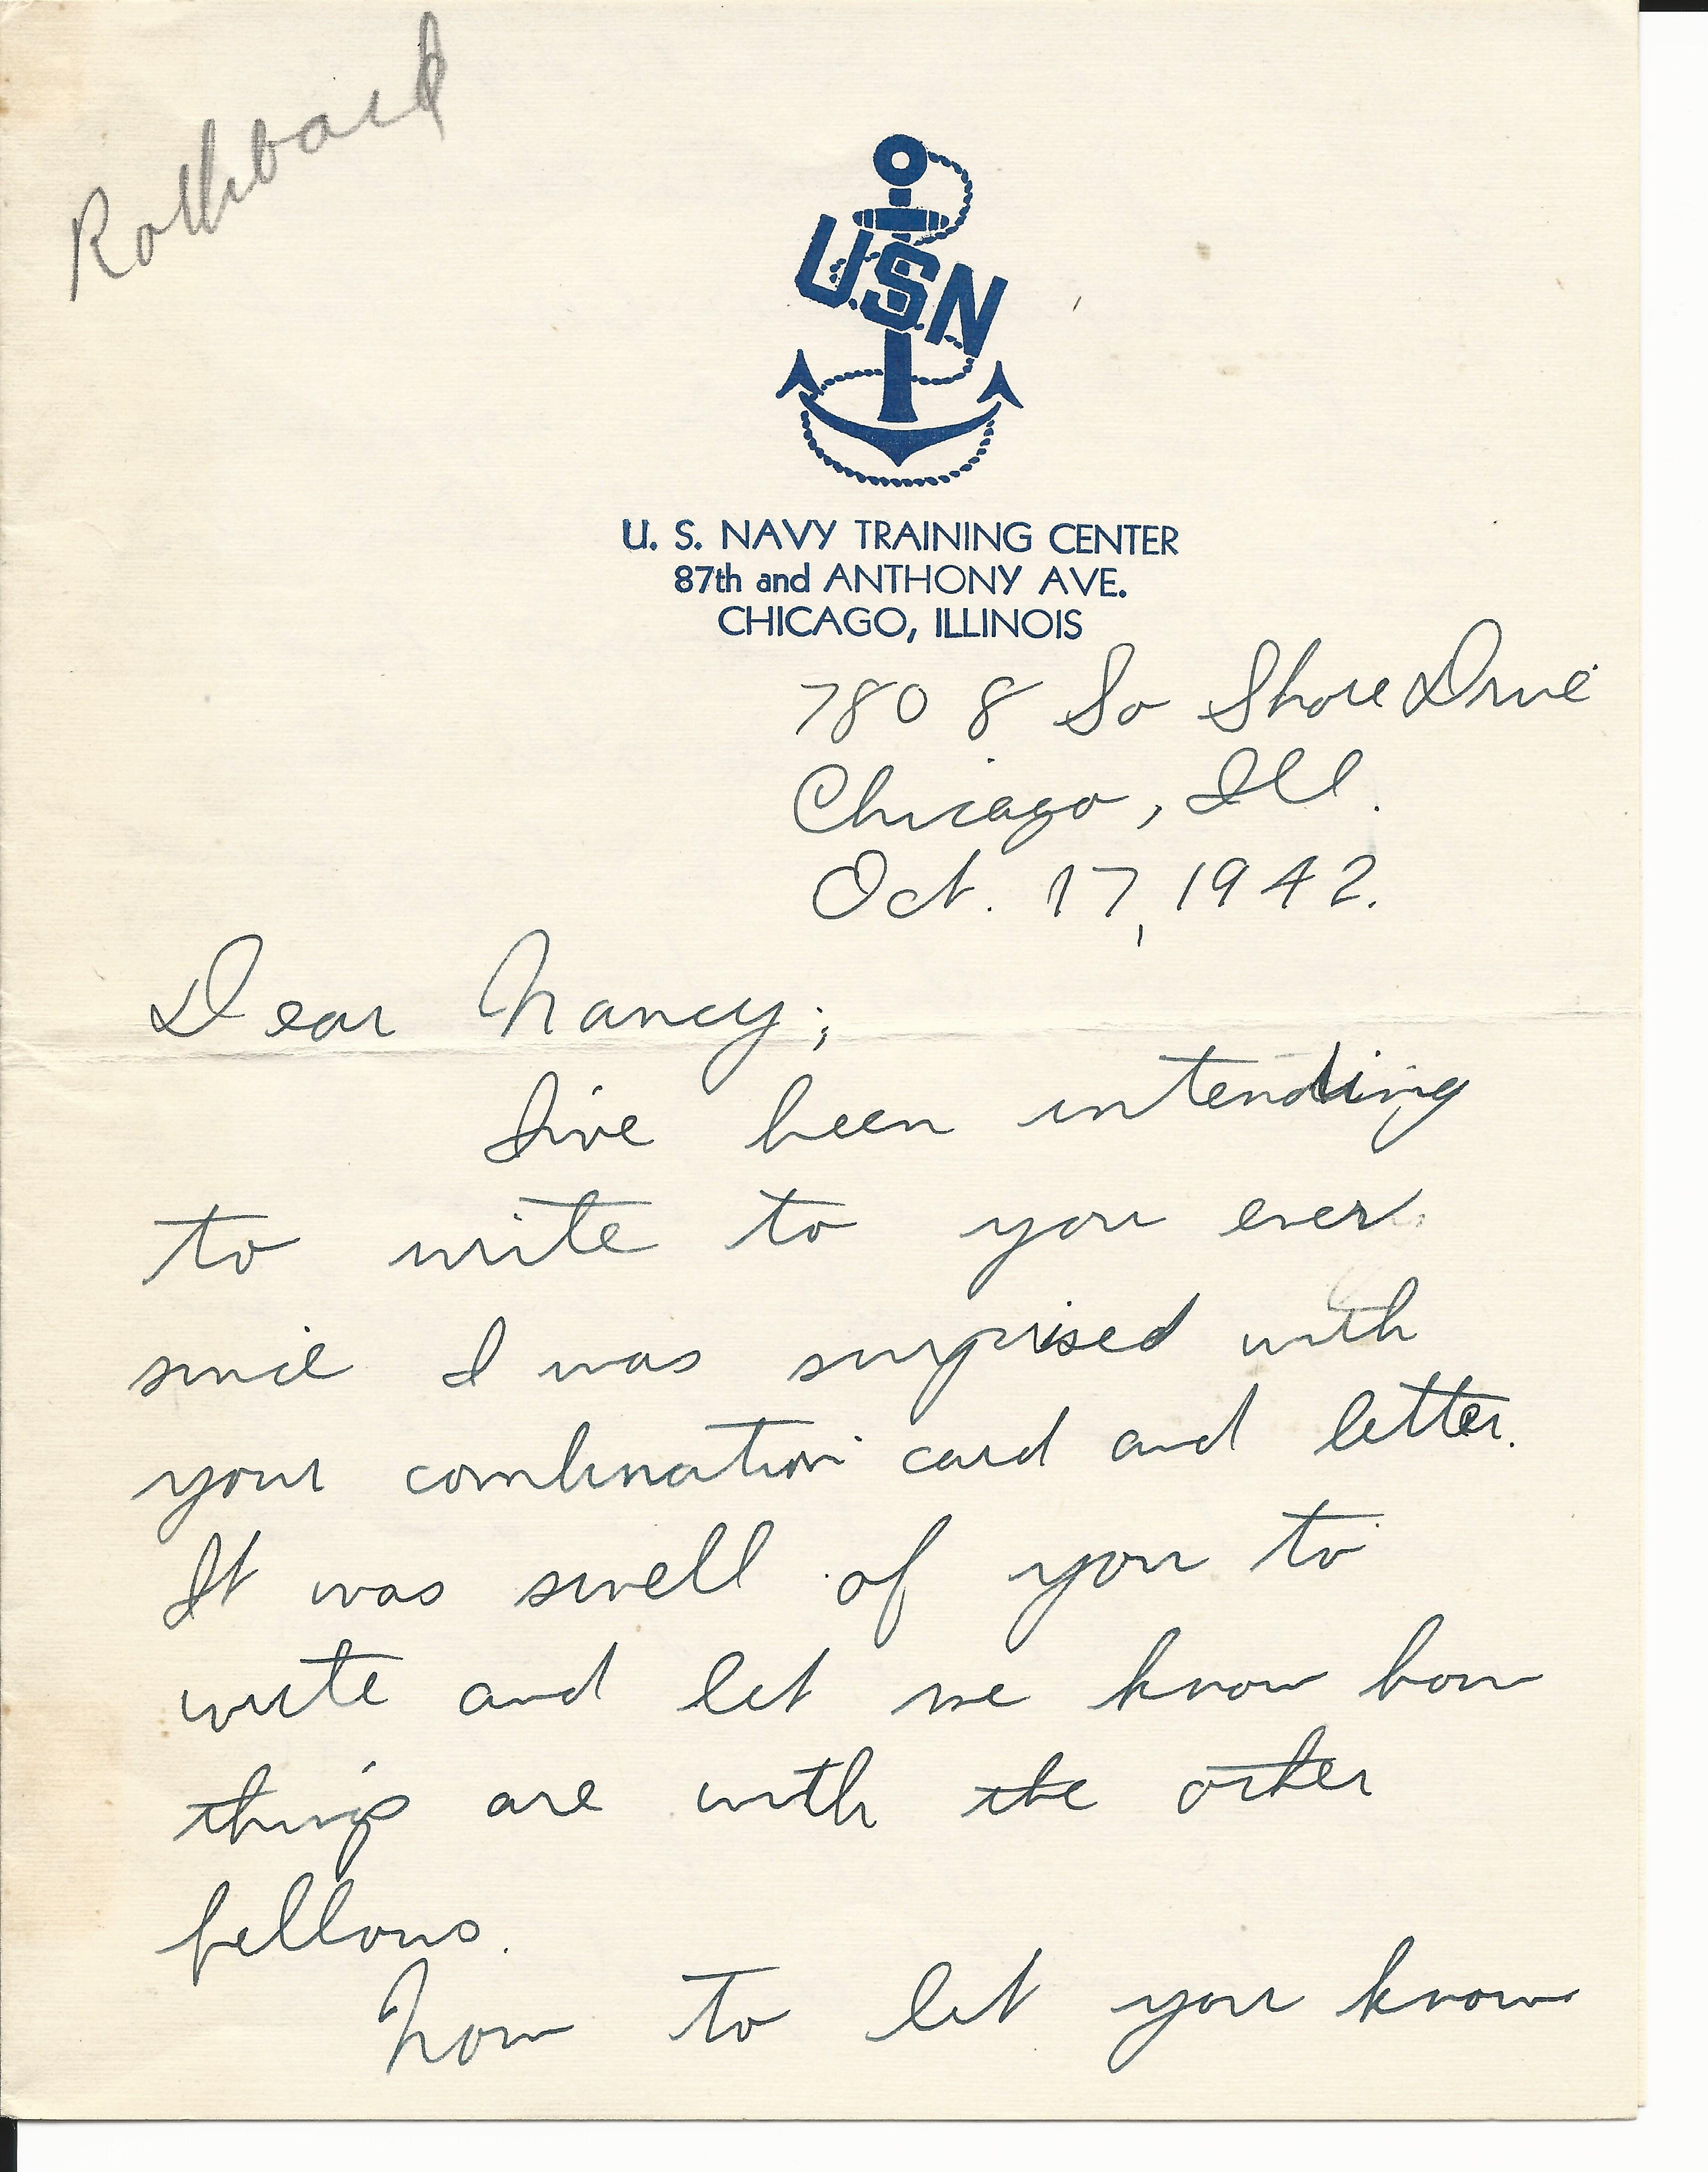 Rothbard
U.S.N
U. S. NAVY TRAINING CENTER
87th and ANTHONY AVE.
CHICAGO, ILLINOIS
7808 So Shore Drive
Chicago, Ill.
Oct. 17, 1942.
Dear Nancy;
I've been intending
to write to you ever
since I was surprised with
your combination card and letter.
It was swell of you to
write and let me know how
things are with the other
fellows.
Now to let you know